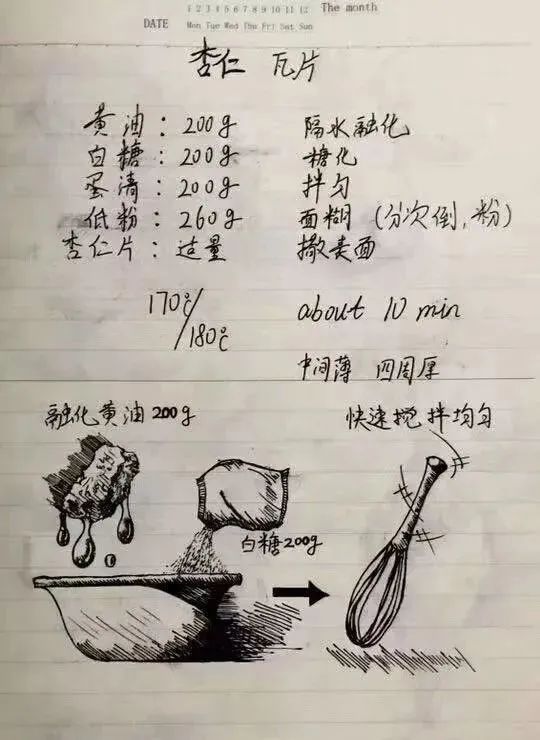 1 2 3 4 5 6 7 8 9 10 11 12 The month
DATE Mon Tue Wed Thu Fri Sat Sun
杏仁 瓦片
黄油:200g 隔水融化
白糖:200g 糖化
蛋清:200g 拌匀
低粉:260g 面糊(分次倒,粉)
杏仁片:适量 撒表面
170℃/180℃ about 10 min
中间薄 四周厚
融化黄油200g 快速搅拌均匀
白糖200g